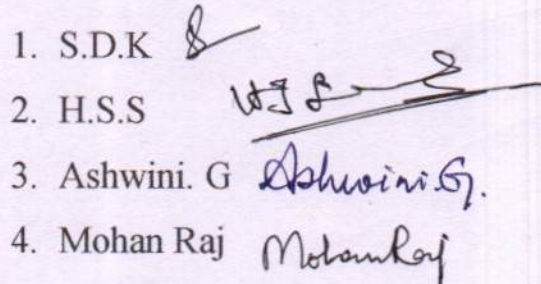 1. S.D.K
2. H.S.S
3. Ashwini. G Ashwini.G.
4. Mohan Raj MohanRaj